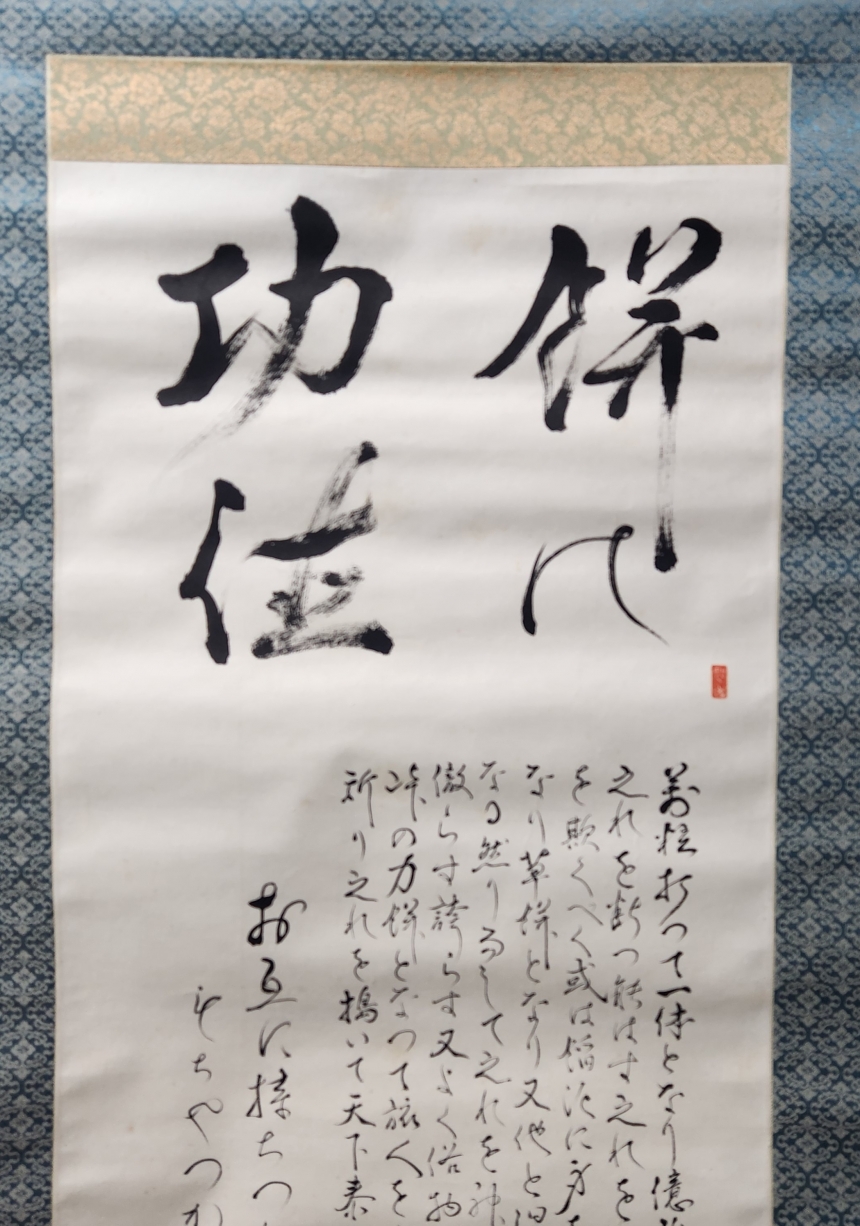 餅の
功徳
萬粒打つて一体となり億
之れを断つ能はす之れを
を欺くべく或は餡泥に身を
なり草餅となり又他と
なる然り而して之れを神
傲らす誇らす又よく俗物
峠の力餅となつて旅人を
祈り之れを搗いて天下泰
お互に持ちつ
もちやつか